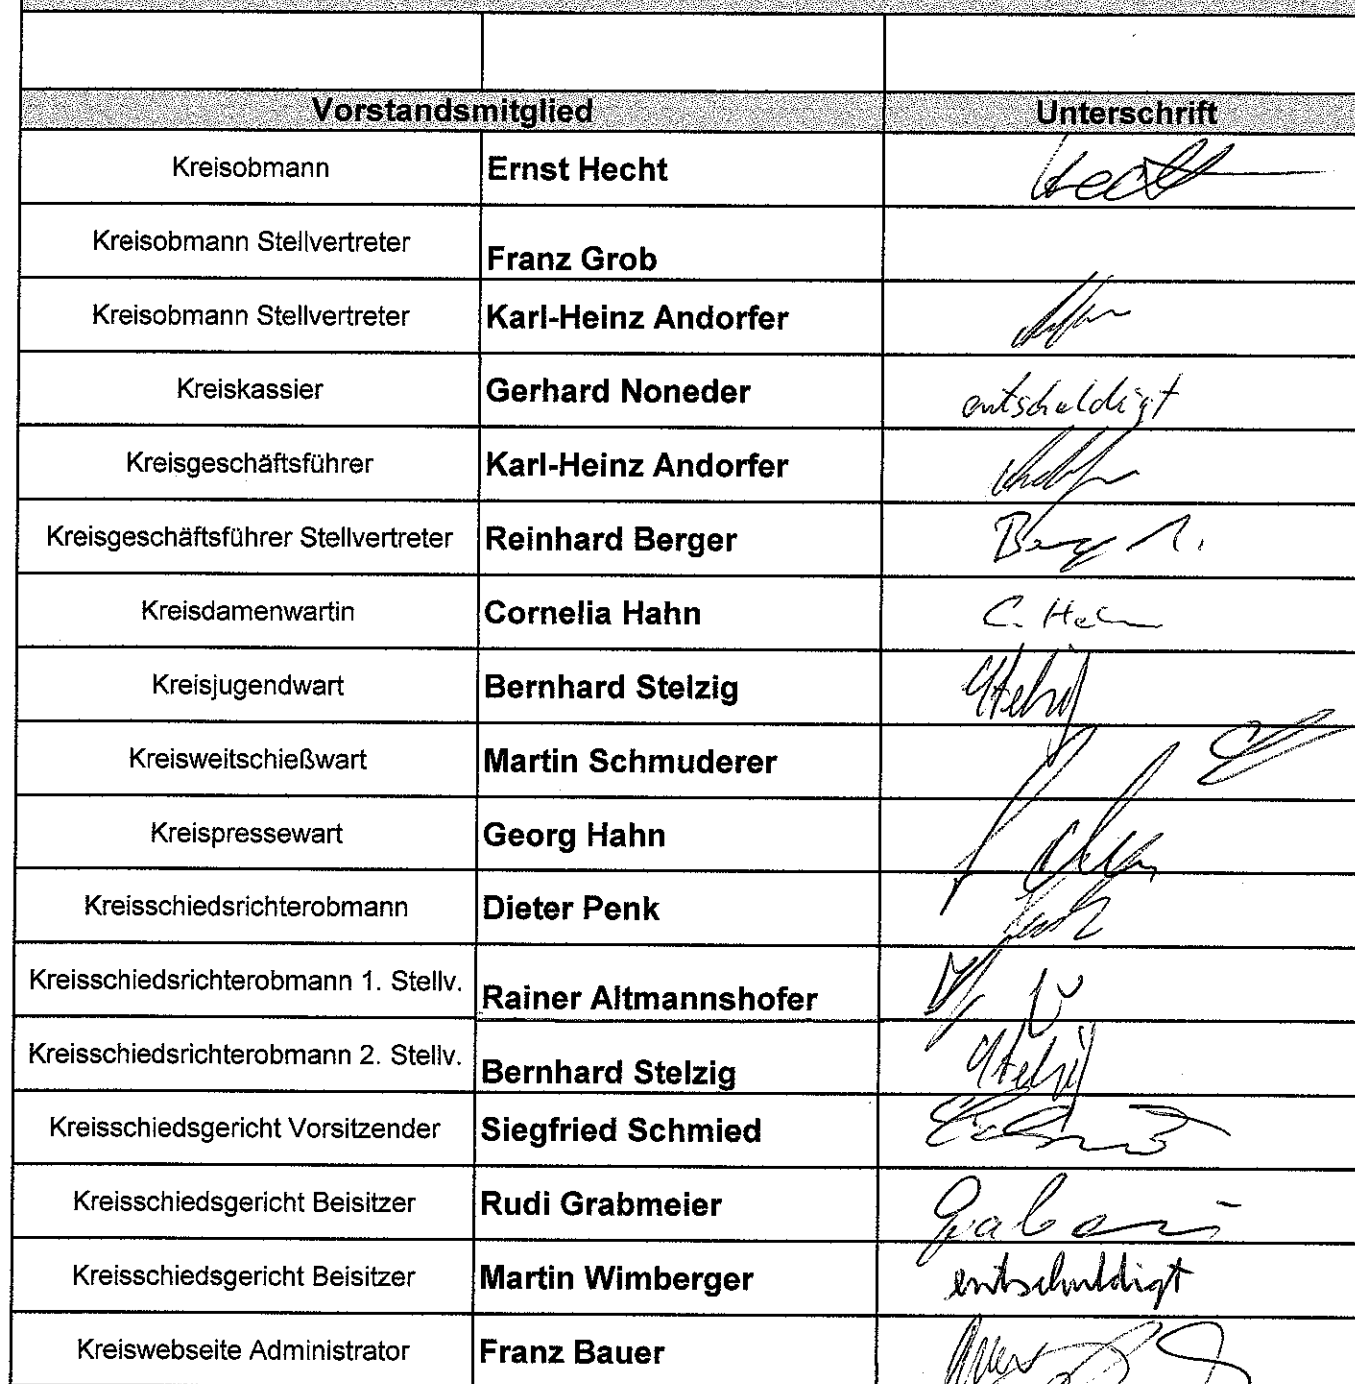 Vorstandsmitglied Unterschrift
Kreisobmann Ernst Hecht Hecht
Kreisobmann Stellvertreter Franz Grob
Kreisobmann Stellvertreter Karl-Heinz Andorfer
Kreiskassier Gerhard Noneder entschuldigt
Kreisgeschäftsführer Karl-Heinz Andorfer
Kreisgeschäftsführer Stellvertreter Reinhard Berger
Kreisdamenwartin Cornelia Hahn C. Hahn
Kreisjugendwart Bernhard Stelzig
Kreisweitschießwart Martin Schmuderer
Kreispressewart Georg Hahn
Kreisschiedsrichterobmann Dieter Penk
Kreisschiedsrichterobmann 1. Stellv. Rainer Altmannshofer
Kreisschiedsrichterobmann 2. Stellv. Bernhard Stelzig
Kreisschiedsgericht Vorsitzender Siegfried Schmied
Kreisschiedsgericht Beisitzer Rudi Grabmeier
Kreisschiedsgericht Beisitzer Martin Wimberger entschuldigt
Kreiswebseite Administrator Franz Bauer